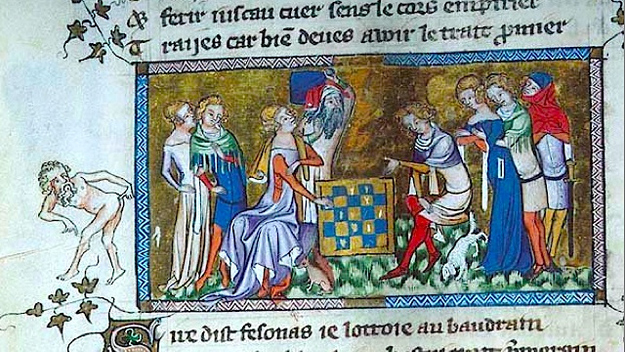 ferir iuscau cuer sens le cors empirier
Traijes car biē deues awir le trait pmier
dist fesonas ie lottoie au baudrain